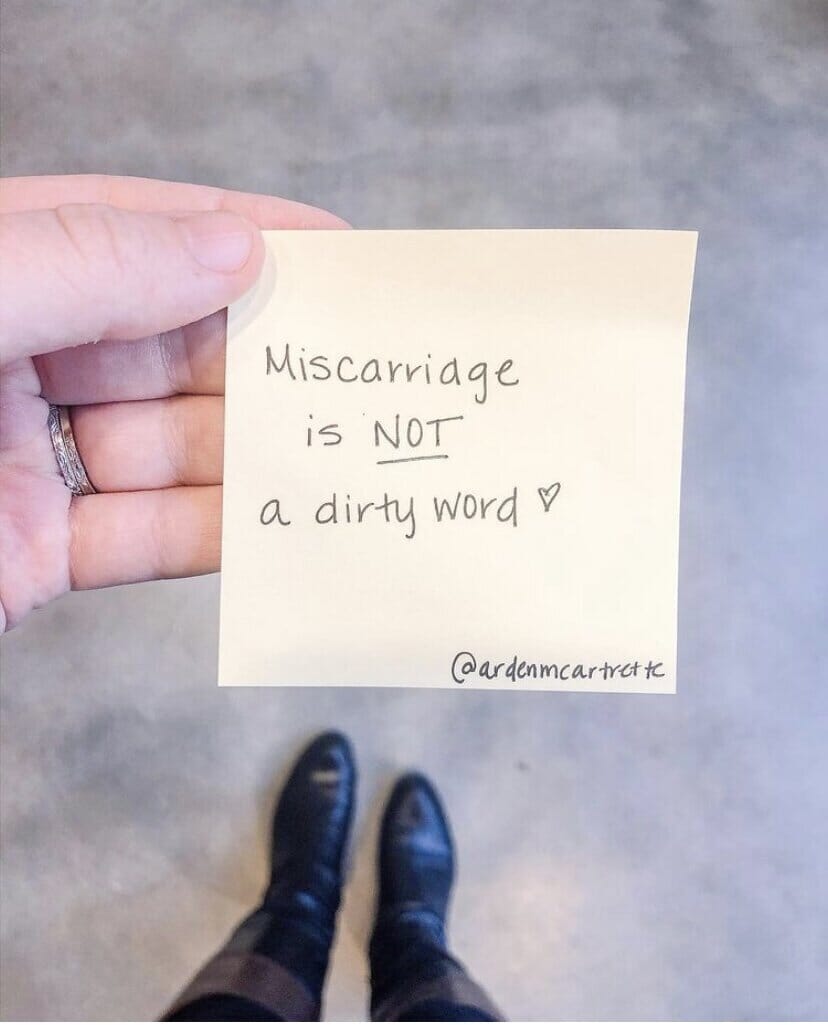 Miscarriage
is NOT
a dirty word ♡
@ardenmcartrette